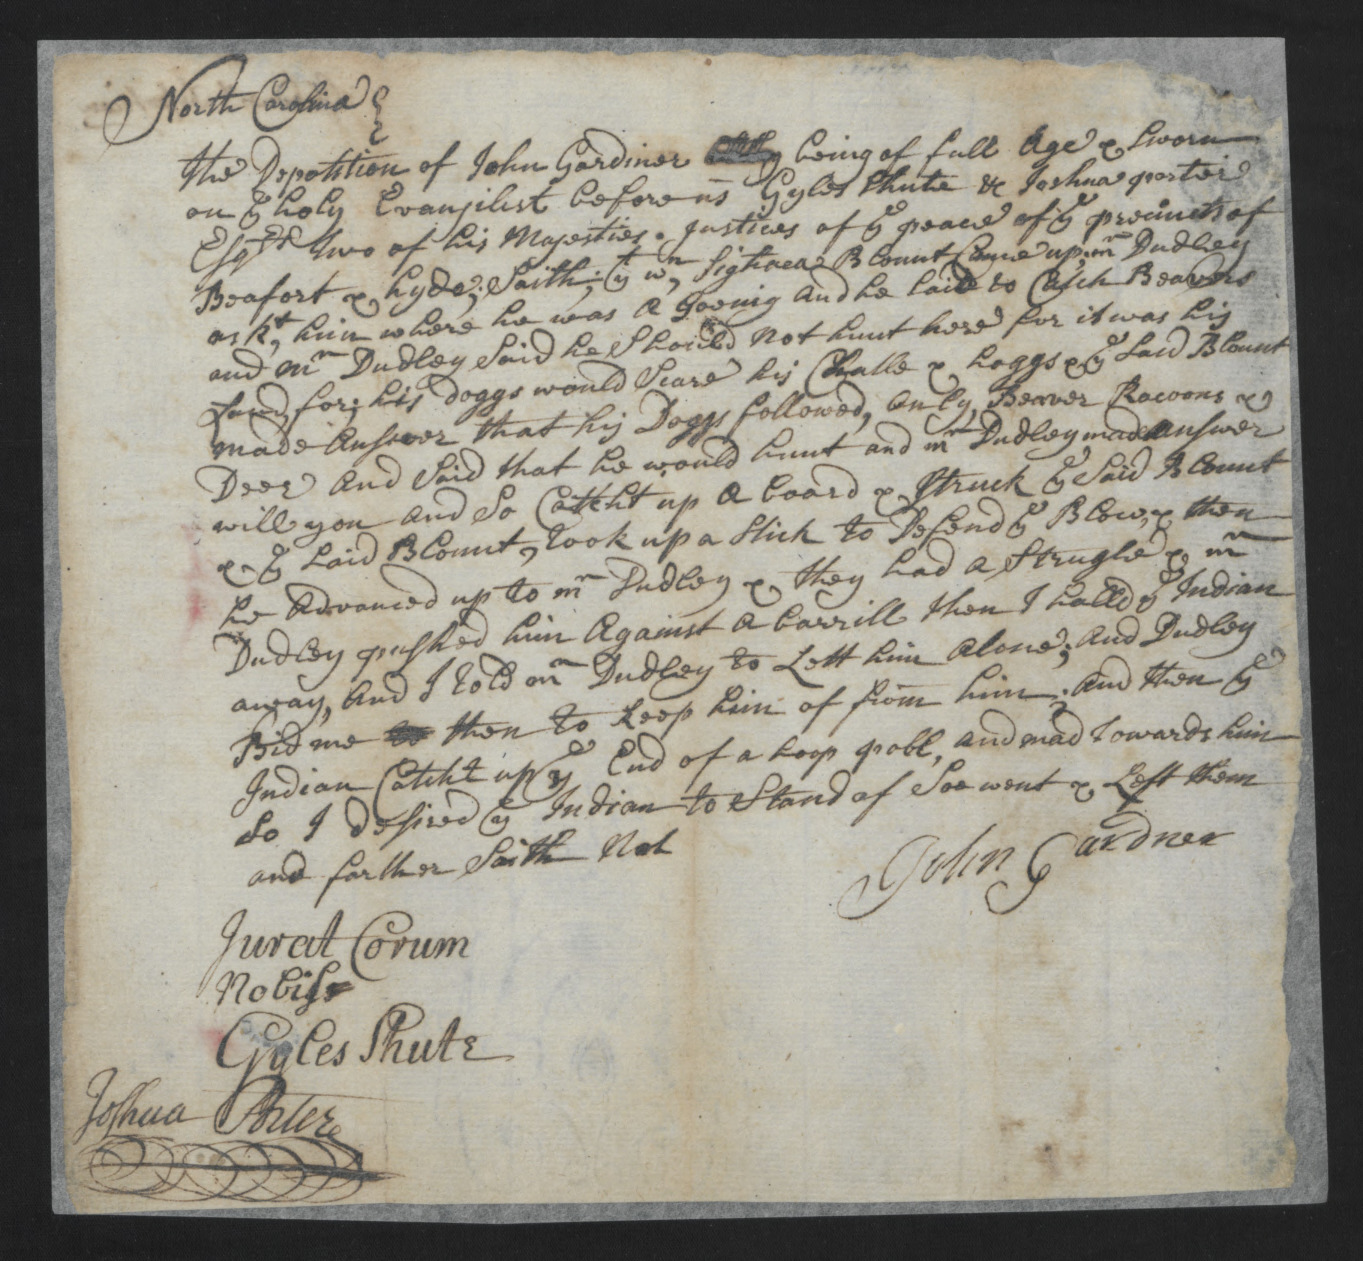 North Carolina
the Depotition of John Gardiner being of full Age & Sworn
on ye holy Evanjilist before us Gyles Shute & Joshua porter
Esqrs two of his Majesties Justices of ye peace of ye precincts of
Beafort & hyde; Saith; yt wn Blount Came up, mr Dudley
askt, him where he was A Goeing And he Said to Catch Beavers
and Mr Dudley Said he Should Not hunt here for it was his
Land, for his Doggs would Scare his Cattle & hoggs & ye Said Blount
made Answer that his Doggs followed, only, Beaver Racoons &
Deer And Said that he would hunt and mr Dudley made Answer
will you and So Catcht up A board & Struck ye Said Blount
& ye Said Blount, took up a Stick to Defend ye Blow, & then
he Advanced up to mr Dudley & they had a Strugle & mr
Dudley pushed him Against A barrill then I halld ye Indian
away, And I told mr Dudley to Lett him Alone; And Dudley
Bid me then to keep him of from him; And then ye
Indian Catcht up ye End of a hoop poll, and mad towards him
So I desired ye Indian to Stand of Soe went & Left them
and farther Saith Not
John Gardner
Jurat Corum
Nobis
Gyles Shute
Joshua Porter